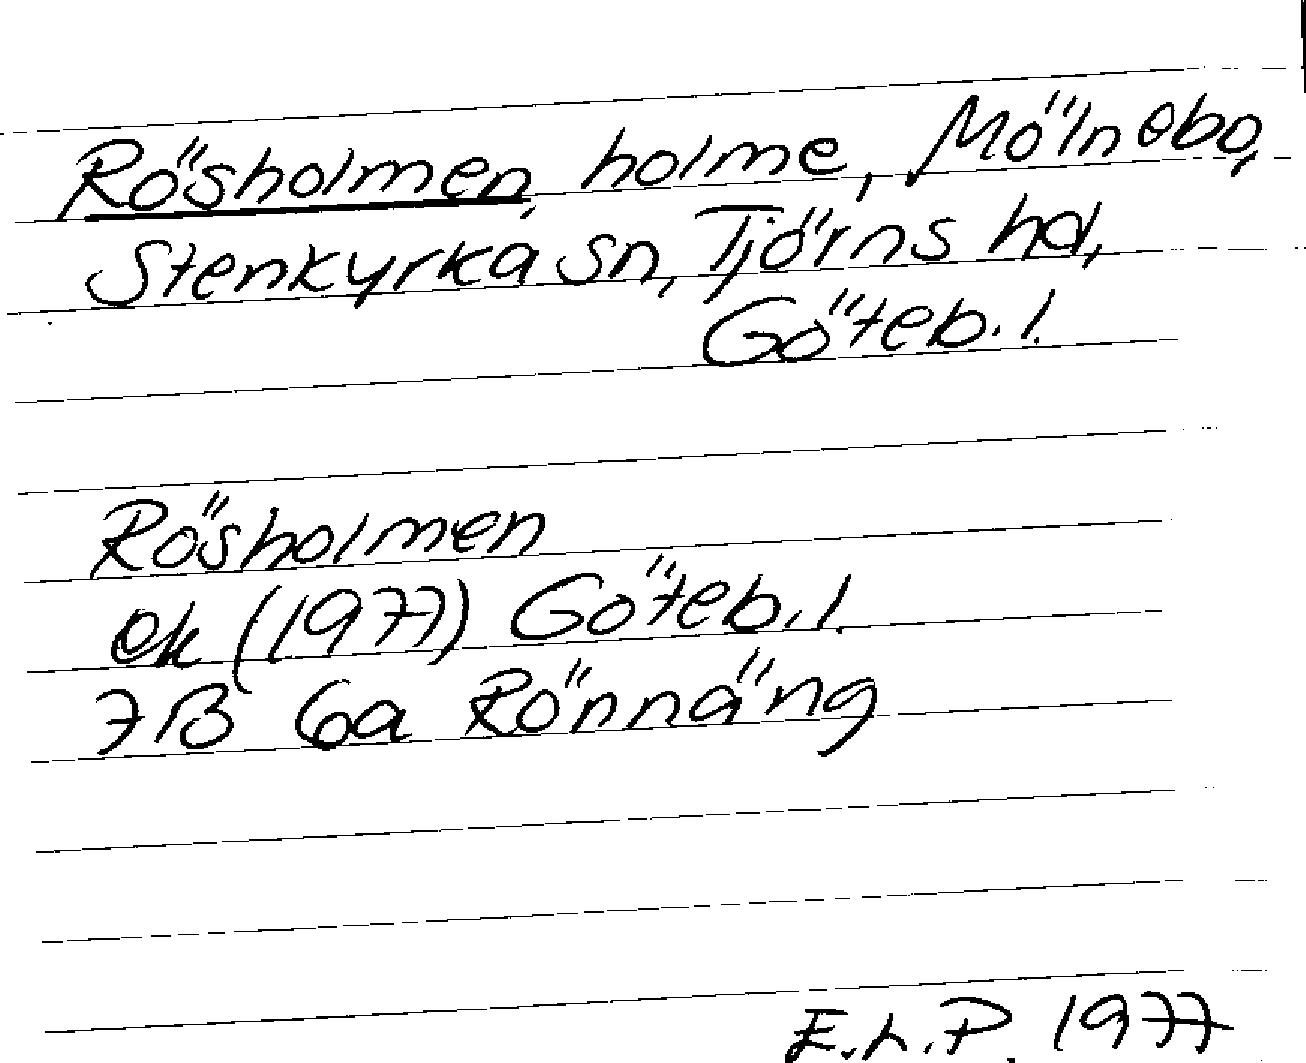 Rösholmen, holme, Mölnebo,
Stenkyrka sn, Tjörns hd,
Göteb. l.
Rösholmen
ek (1977) Göteb. l.
7B 6a Rönnäng
E.L.P. 1977